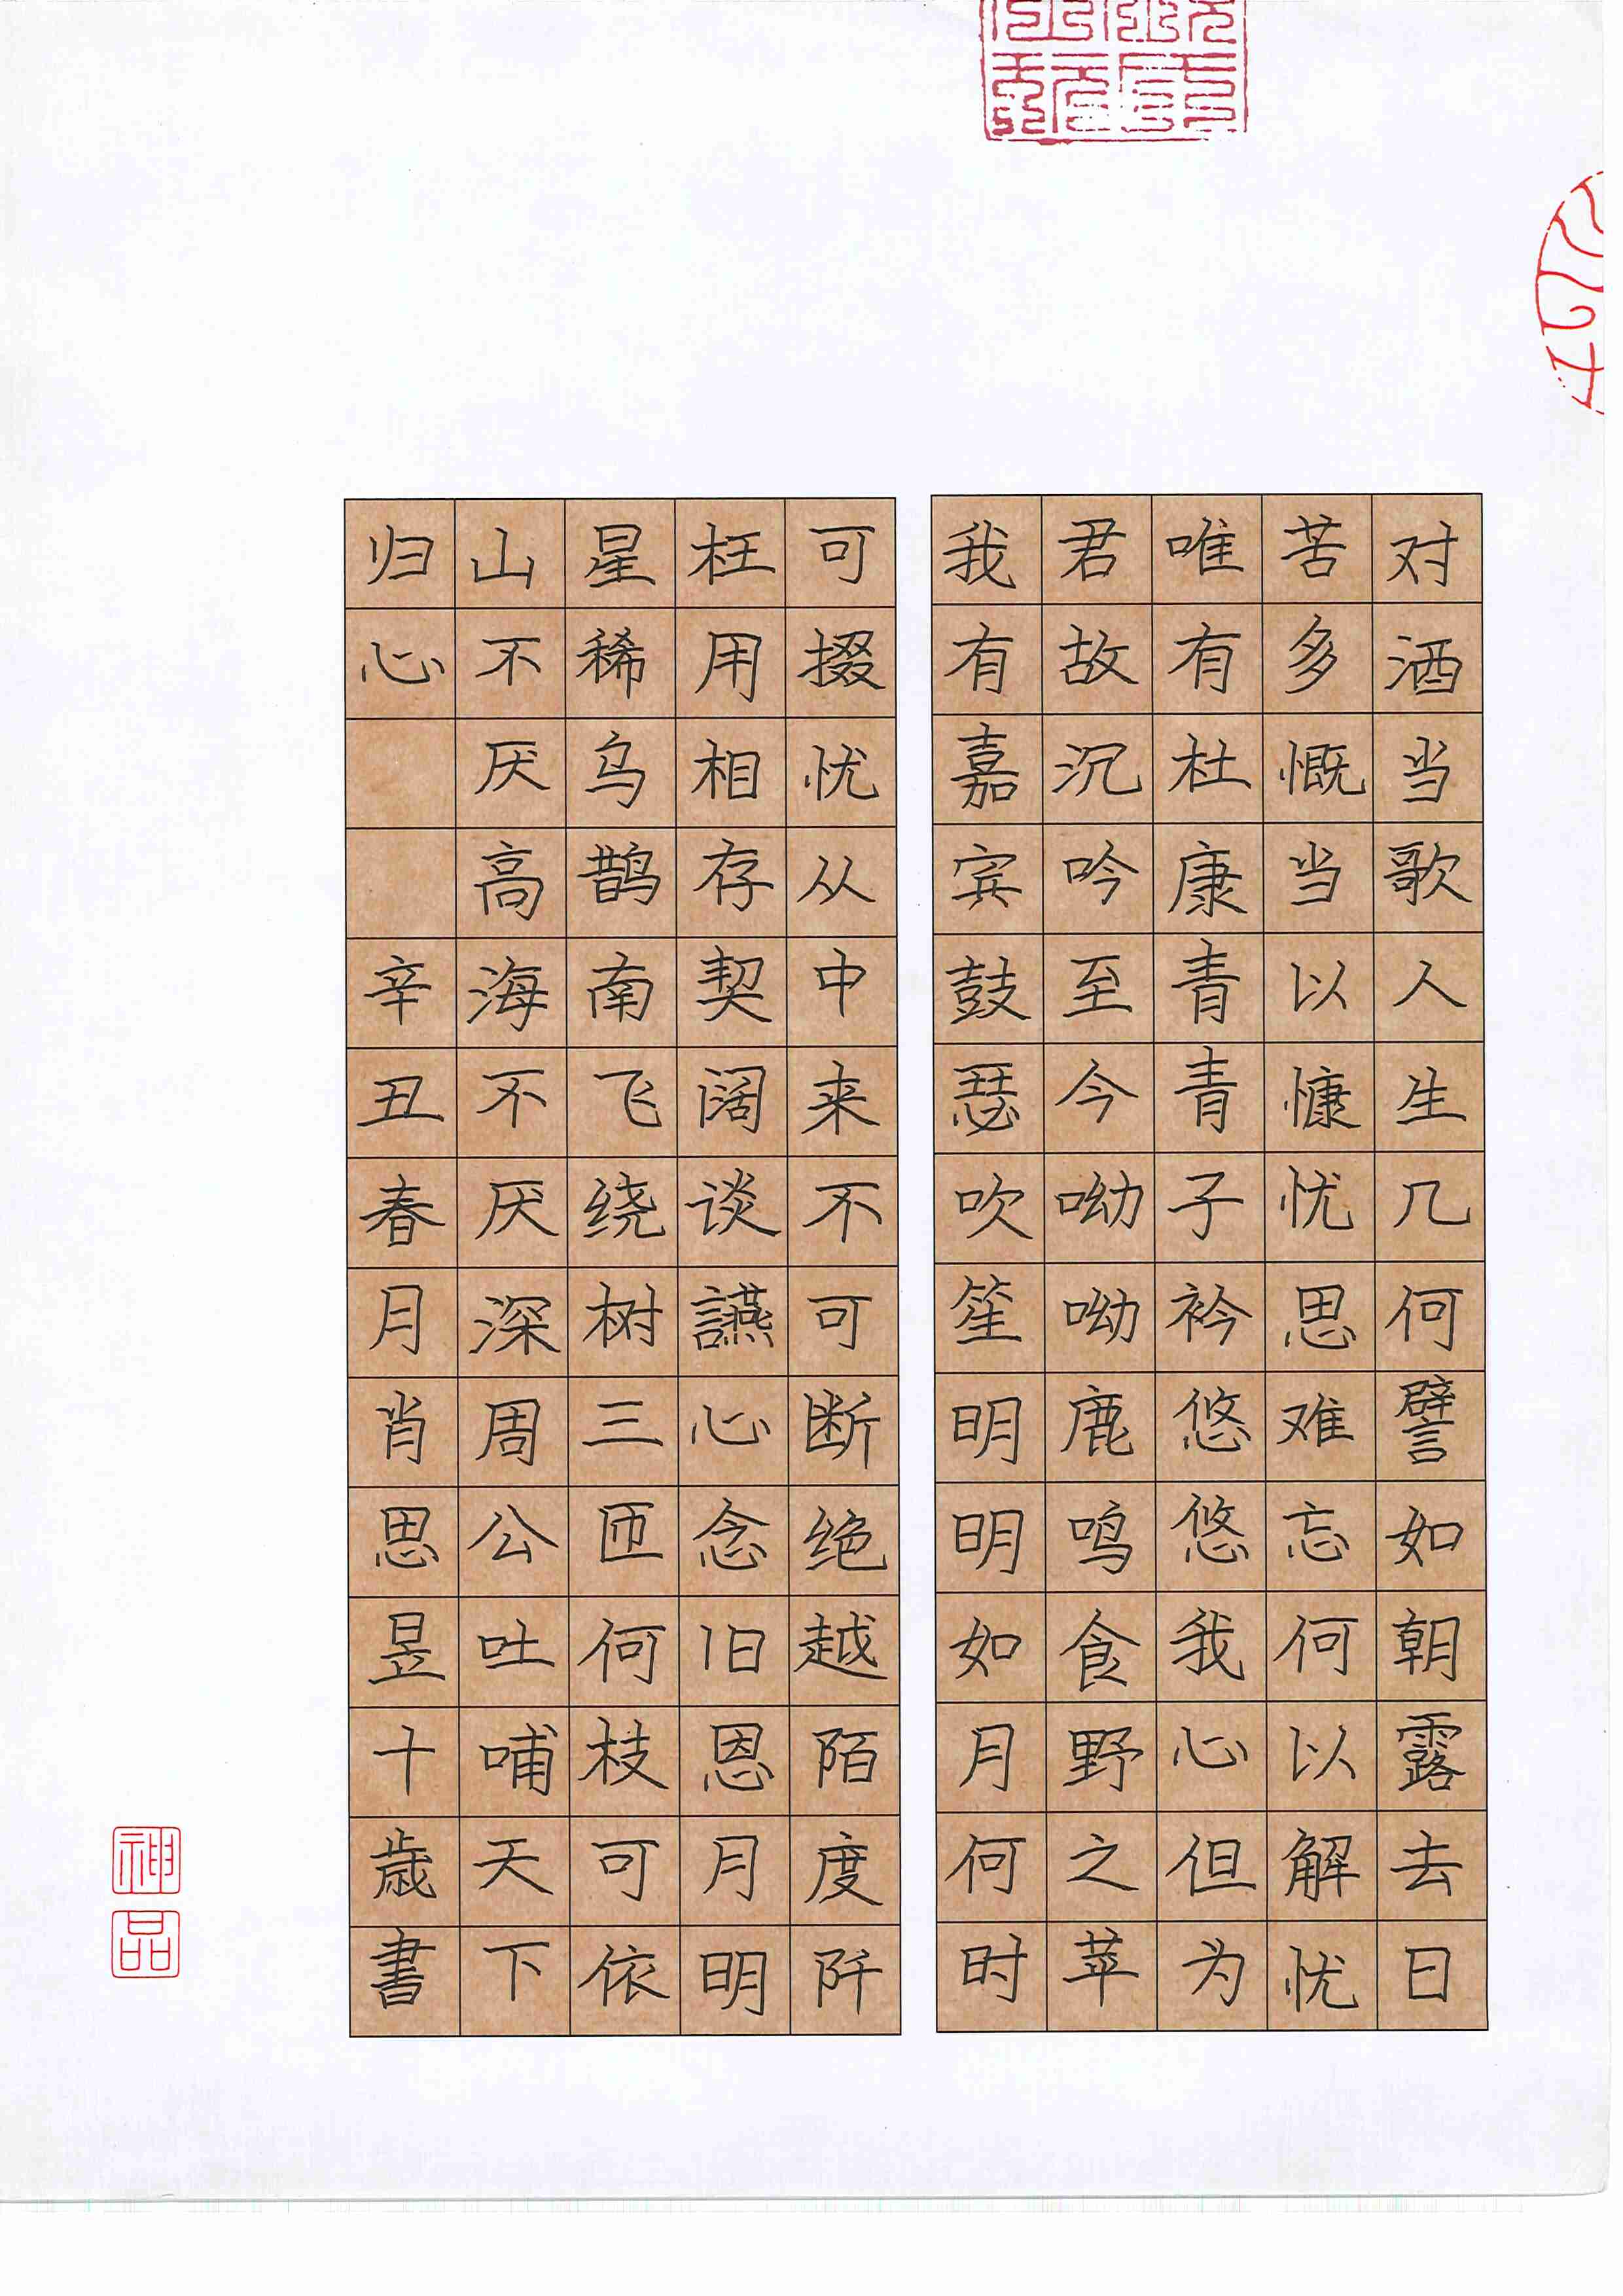 对酒当歌人生几何譬如朝露去日
苦多慨当以慷忧思难忘何以解忧
唯有杜康青青子衿悠悠我心但为
君故沉吟至今呦呦鹿鸣食野之苹
我有嘉宾鼓瑟吹笙明明如月何时
可掇忧从中来不可断绝越陌度阡
枉用相存契阔谈讌心念旧恩月明
星稀乌鹊南飞绕树三匝何枝可依
山不厌高海不厌深周公吐哺天下
归心 辛丑春月肖思昱十歳書
神品